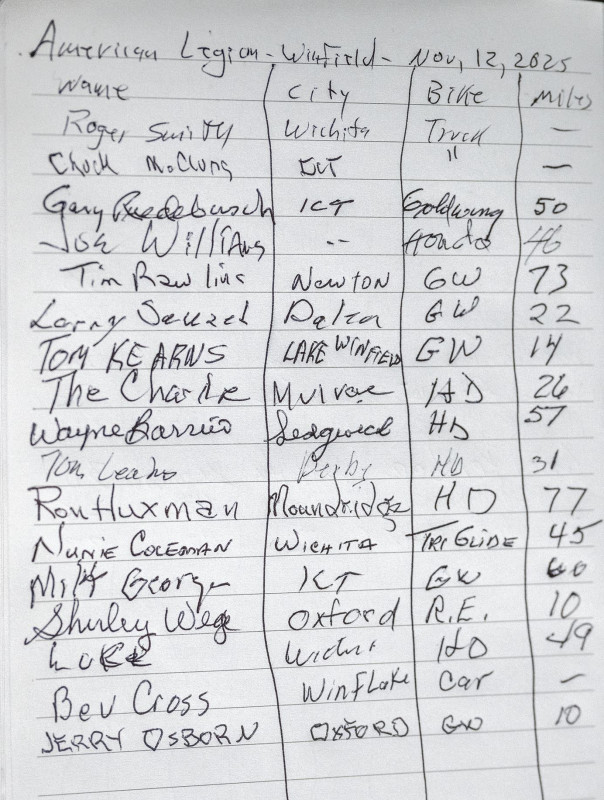 American Legion - Winfield - Nov, 12, 2025
Name City Bike Miles
Roger Smith Wichita Truck —
Chuck McClung ICT " —
Gary Ruedebusch ICT Goldwing 50
Joe Williams -- Honda 46
Tim Rawlins Newton GW 73
Larry GW 22
TOM KEARNS LAKE WINFIELD GW 14
The Charlie Mulvane HD 26
Wayne Barrier Sedgwick HD 57
Tom Derby HD 31
Ron Huxman Moundridge HD 77
NUNIE COLEMAN WICHITA TRIGLIDE 45
Milt George ICT GW 60
Shirley Wege Oxford R.E. 10
Luke HD 49
Bev Cross Winflake Car —
JERRY OSBORN OXFORD GW 10